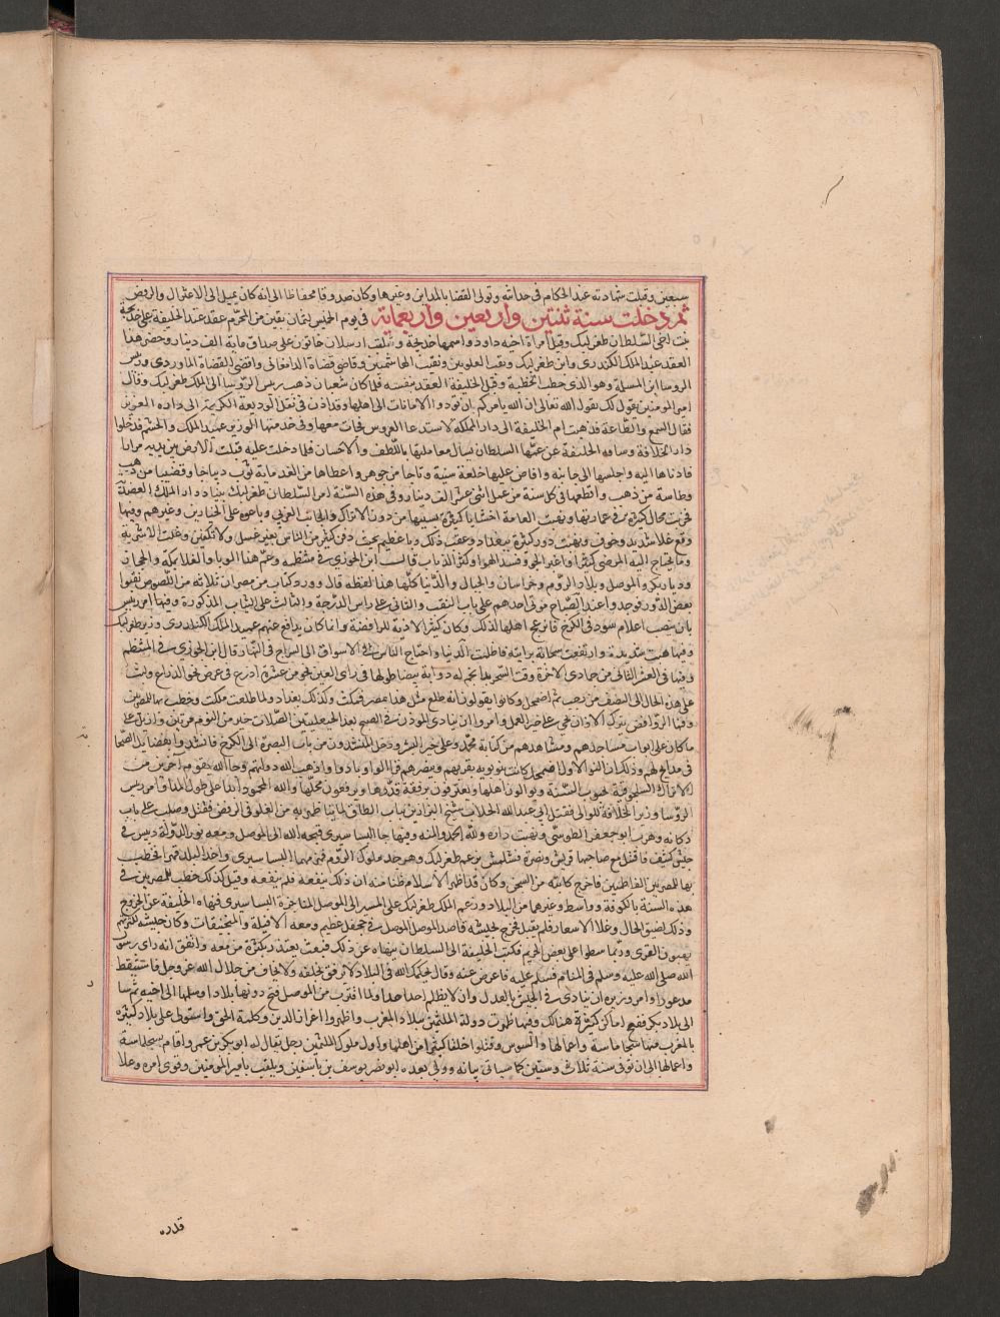 سبعين وقبلت شهادته عند الحكام في حداثته وتولى القضا بالمداين وغيرها وكان صدوقا محفاظا الى انه كان يميل الى الاعتزال والرفض
ثم دخلت سنة ثنتين واربعين واربعماية في يوم الخميس لثمان بقين من المحرم عقد عند الخليفة على خديجة
بنت اخي السلطان طغرلبك وقيل امراة اخيه داود واسمها خديجة ارسلان خاتون على صداق ماية الف دينار وحضر هذا
العقد عميد الملك الكندري وزير طغرلبك ونقيب العلويين ونقيب الهاشميين وقاضي قضاة الدامغاني واقضى القضاة الماوردي وريس
الروسا ابن المسلمة وهو الذي خطب الخطبة وقبل الخليفة العقد بنفسه فلما كان شعبان ذهب ريس الروسا الى الملك طغرلبك وقال
امير المومنين يقول لك يقول الله تعالى ان الله يامركم ان تودوا الامانات الى اهلها وقد اذن في نقل الوديعة الكريمة الى داره العزيز
فقال السمع والطاعة فذهبت ام الخليفة الى دار المملكة لاستدعا العروس فجات معها وفي خدمتها الوزير عميد الملك والحشم فدخلوا
دار الخلافة وشافه الخليفة عن عمها السلطان يسال معاملتها باللطف والاحسان فلما دخلت عليه قبلت الارض بين يديه مرارا
فادناها اليه واجلسها الى جانبه وافاض عليها خلعة سنية وتاجا من جوهر واعطاها من الغد ماية ثوب ديباجا وقضيبا من ذهب
وطاسة من ذهب واقطعها في كل سنة من اثنى عشر الف دينار وفي هذه السنة امر السلطان طغرلبك ببناء دار الملك العضدية
فخربت محال كثيرة في عمارتها ونهبت العامة اخشابا كثيرة بسببها من دور الاتراك والجانب الغربي وباعوه على الخبازين وغيرهم وفيها
وقع غلا شديد وخوف ونهب دور كثيرة ببغداد وعقب ذلك وبا عظيم بحيث دفن كثير من الناس بغير غسل ولا تكفين وغلت الاشربة
وما يحتاج اليه المرضى كثيرا واغبر الجو وفسد الهوا وكثر الذباب قال ابن الجوزي في منتظمه وعم هذا الوبا والغلا بمكة والحجاز
وديار بكر والموصل وبلاد الروم وخراسان والجبال والدنيا كلها هذا لفظه قال وورد كتاب من مصر ان ثلاثة من اللصوص نقبوا
بعض الدور فوجدوا عند الصباح موتى احدهم على باب النقب والثاني على راس الدرجة والثالث على الثياب المذكورة وفيها امر ريس
بان نصب اعلام سود في الكرخ فانزعج اهلها لذلك وكان كثير الاذية للرافضة وانما كان يدافع عنهم عميد الملك الكندري وزير طغرلبك
وفيها هبت ريح شديدة وارتفعت سحابة ترابية فاظلمت الدنيا واحتاج الناس في الاسواق الى السراج في النهار قال ابن الجوزي في المنتظم
وفيها في العشر الثاني من جمادى الاخرة وقت السحر نجم له ذوابة بيضا طولها في راى العين نحو من عشرة اذرع في عرض نحو الذراع ولبث
على هذه الحال الى النصف من رجب ثم اضمحل وكانوا يقولون انه طلع مثل هذا بمصر فملكت وكذلك بغداد ولما طلعت ملكت وخطب بها للمصريين
وفيها الروافض بترك الاذان بحي على خير العمل وامروا ان ينادي الموذن في الصبح بعد الحيعلتين الصلاة خير من النوم مرتين وازيل
ما كان على ابواب مساجدهم ومشاهدهم من كتابة محمد وعلي خير البشر ودخل المنشدون من باب البصرة الى الكرخ فانشدوا بفضايل الصحابة
في مدايح لهم وذلك ان النو الاول اضمحل كانت بنو بويه تقويهم وتنصرهم فزالوا وبادوا واذهب الله دولتهم وجا الله بقوم آخرين من
الاتراك السلجوقية يحبون السنة ويوالون اهلها ويعترفون برفعة قدرها ويرفعون محلها والله المحمود ابدا على طول المدا وامر ريس
الروسا وزير الخلافة للوالي فقتل ابي عبد الله الجلاب شيخ البزازين بباب الطاق لما يتظاهر به من الغلو في الرفض فقتل وصلب على باب
دكانه وهرب ابو جعفر الطوسي ونهبت داره ولله الحمد والمنة وفيها جا البساسيري قبحه الله الى الموصل ومعه نور الدولة دبيس في
جيش كثيف فاقتتل مع صاحبها قريش ونصره قتلمش بن عم طغرلبك وهو جد ملوك الروم فهزمهما البساسيري واخذ البلد قهرا فخطب
بها للمصريين الفاطميين فاخرج كاتبه من السجن وكان قد اظهر الاسلام ظنا منه ان ذلك ينفعه فلم ينفعه وقيل كذلك خطب للمصريين في
هذه السنة بالكوفة وواسط وغيرها من البلاد وعزم الملك طغرلبك على المسير الى الموصل لمناجزة البساسيري فنهاه الخليفة عن الخروج
وذلك لضيق الحال وغلا الاسعار فلم يقبل فخرج بجيشه قاصدا الموصل في جحفل عظيم ومعه الافيلة والمنجنيقات وكان جيشه لكثرتهم
ينهبون القرى وربما سطوا على بعض الحريم فكتب الخليفة الى السلطان ينهاه عن ذلك فبعث يعتذر بكثرة من معه واتفق انه راى رسول
الله صلى الله عليه وسلم في المنام فسلم عليه فاعرض عنه وقال يحكمك الله في البلاد لا ترفق بخلقه ولا تخاف من جلال الله عز وجل فاستيقظ
مدعورا وامر وزيره ان ينادي في الجيش بالعدل وان لا يظلم احد احدا ولما اقترب من الموصل فتح دونها بلادا وسلمها الى اخيه ثم سا
الى بلاد بكر ففتح اماكن كثيرة هنالك وفيها ظهرت دولة الملثمين ببلاد المغرب واظهروا اعزاز الدين وكلمة الحق واستولى على بلاد كثيرة
بالمغرب فمنها سجلماسة واعمالها والسوس وقتلوا خلقا كثيرا من اهلها واول ملوك الملثمين رجل يقال له ابو بكر بن عمر واقام بسجلماسة
واعمالها الى ان توفى سنة ثلاث وستين كما سياتي بيانه وولي بعده ابو نصر يوسف بن تاشفين وتلقب بامير المومنين وقوى امره وعلا
قدره